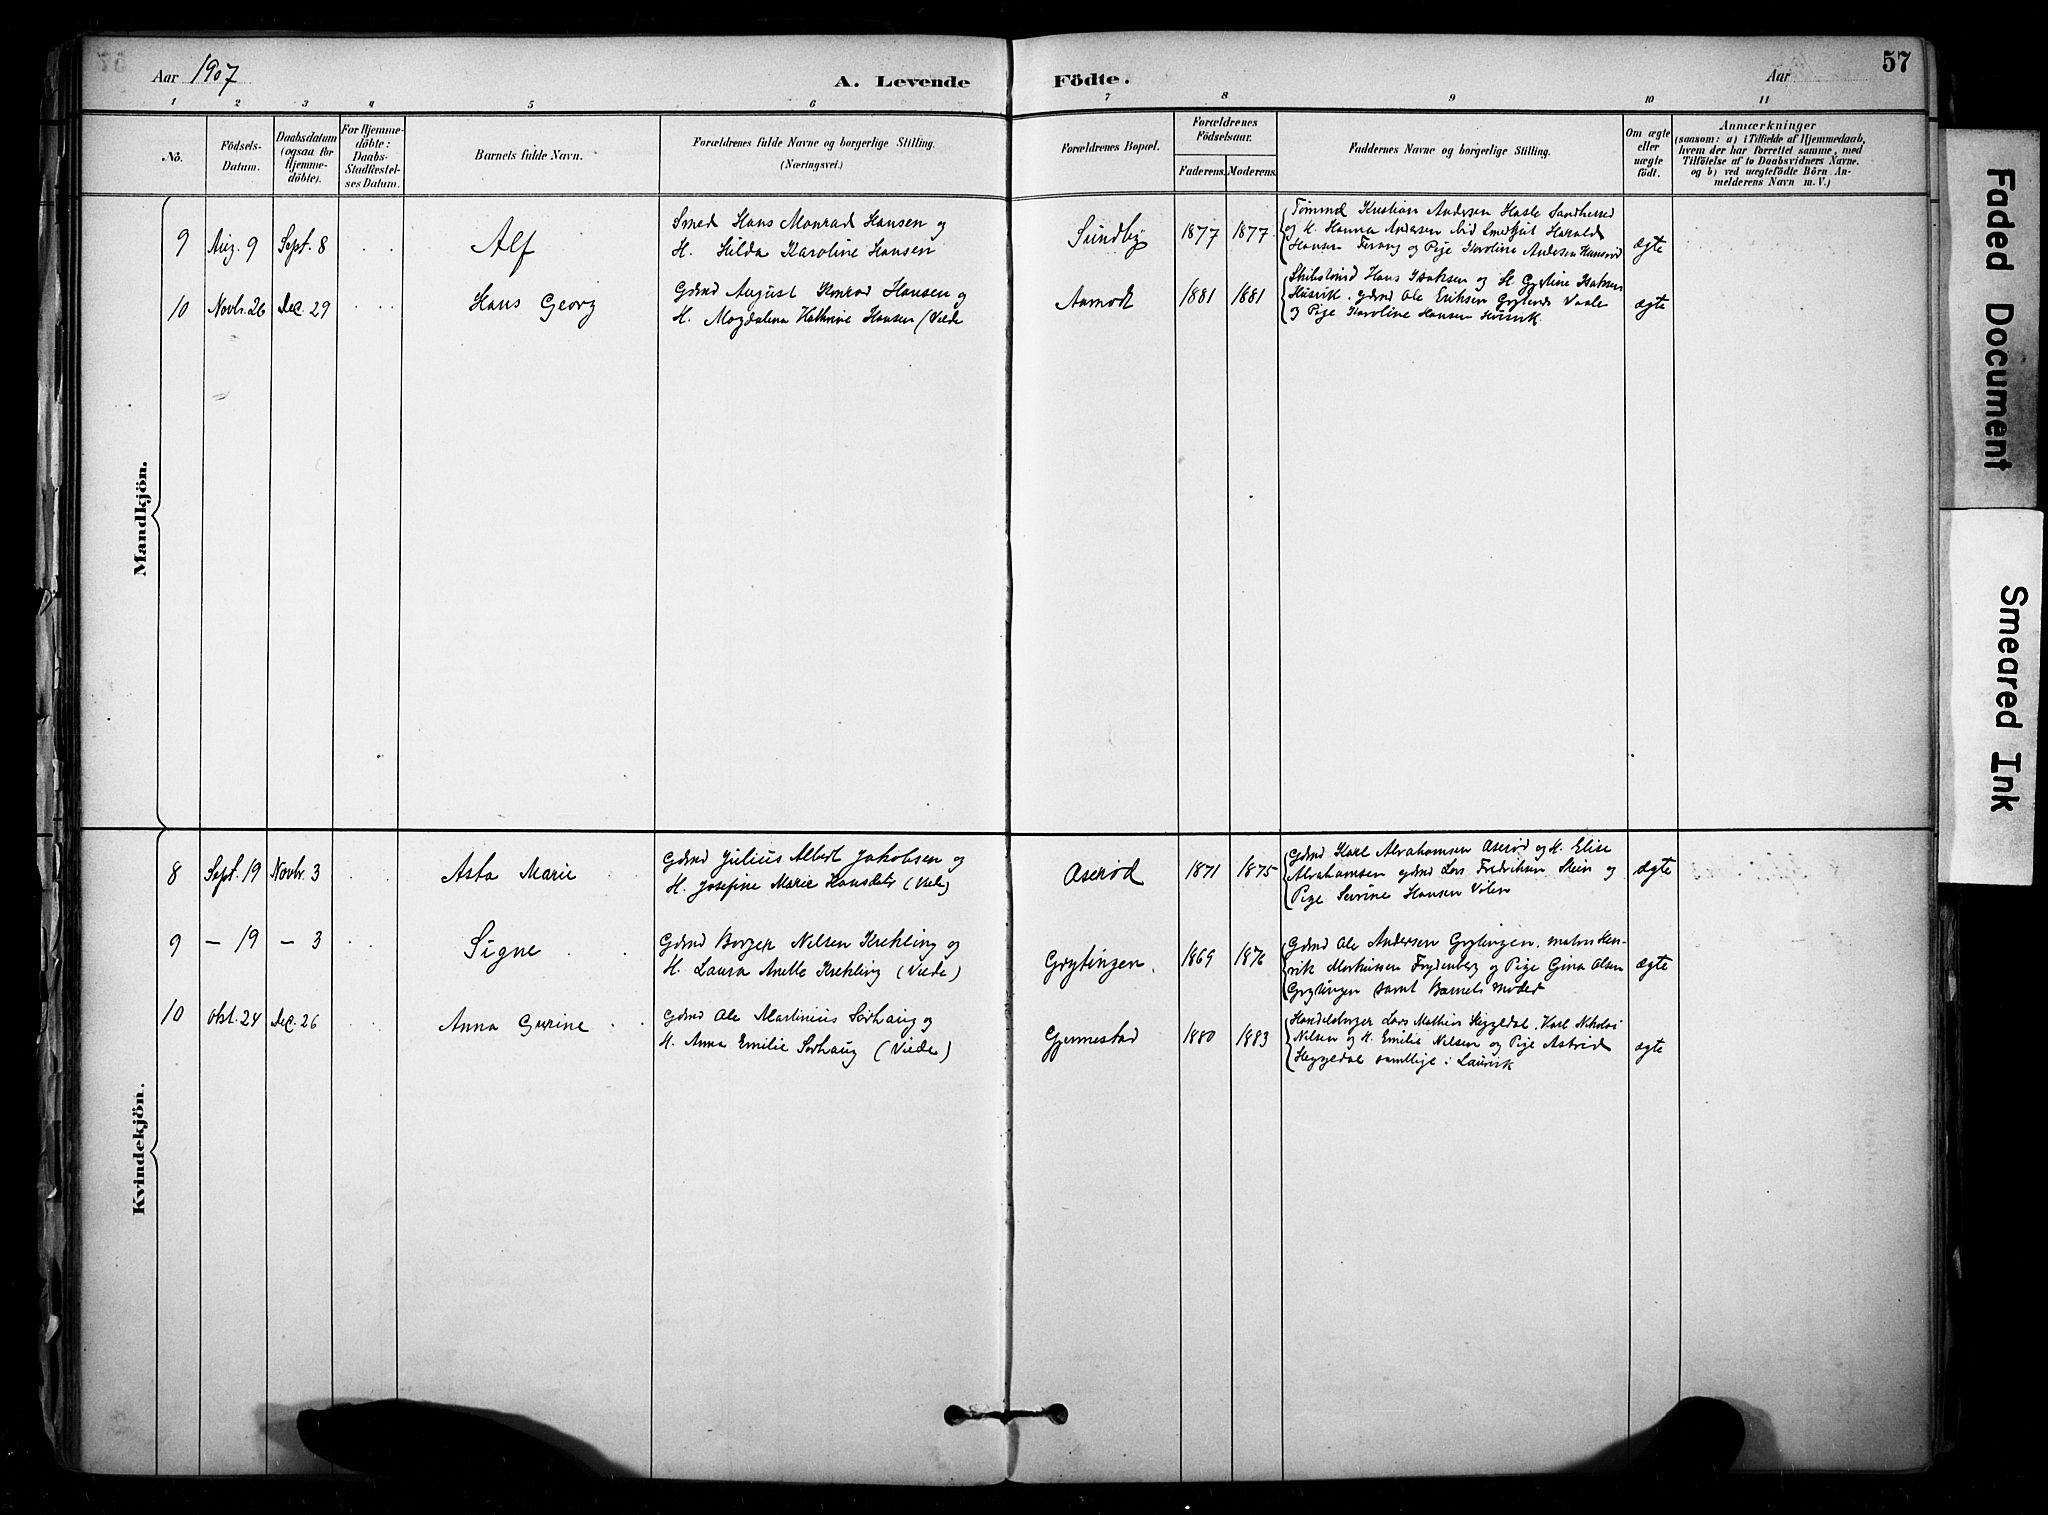 57
Aar 1907
A. Levende Födte.
Aar
1 2 3 4 5 6 7 8 9 10 11
No.
Födsels-
Datum.
Daabsdatum
(ogsaa for
Hjemme-
döbte).
For Hjemme-
döbte:
Daabs-
Stadfæstel-
ses Datum.
Barnets fulde Navn.
Forældrenes fulde Navne og borgerlige Stilling.
(Næringsvei.)
Forældrenes Bopæl.
Forældrenes
Födselsaar.
Faderens. Moderens.
Faddernes Navne og borgerlige Stilling.
Om ægte
eller
uægte
födt.
Anmærkninger
(saasom: a) i Tilfælde af Hjemmedaab,
hvem der har forrettet samme, med
Tilföielse af to Daabsvidners Navne.
og b) ved uægtefödte Börn An-
melderens Navn m. V.)
Mandkjön.
9 Aug. 9 Sept. 8 Alf
Smed Hans Monrad Hansen og
H. Hilda Karoline Hansen
Sundby 1877 1877
Tømmd Kristian Andersen Hasle Sandherred
og H. Hanna Andersen Harald
Hansen og Pige Karoline Andersen
ægte
10 Novbr. 26 Dec. 29 Hans Georg
Gdmd August Konrad Hansen og
H. Magdalena Kathrine Hansen (Viede
Aamodt 1881 1881
Hans Isaksen og H. Isaksen
Husvik. gdmd Ole Eriksen Vaale
og Pige Karoline Hansen Husvik.
ægte
Kvindekjön.
8 Sept. 19 Novbr. 3 Asta Marie
Gdmd Julius Albert Jakobsen og
H. Josefine Marie Hansdatr (Viede)
Aserød 1871 1875
Gdmd Karl Abrahamsen Aserød og H. Elise
Abrahamsen gdmd Lars Fredriksen Stein og
Pige Severine Hansen
ægte
9 – 19 – 3 Signe
Gdmd Borger Nilsen Krekling og
H. Laura Anette Krekling (Viede)
Grytingen. 1869 1876
Gdmd Ole Andersen Grytingen. matros Hen-
rik Markussen Frydenberg og Pige Gina Olsen
Grytingen samt Barnets Moder
ægte
10 Okt. 24 Dec. 26 Anna Gurine
Gdmd Ole Martinius Sørhaug og
H. Anna Emilie Sørhaug (Viede)
Gjennestad 1880 1883
Handelsborger Lars Mathias Heggedal. Karl Nikolai
Nilsen og H. Emilie Nilsen og Pige Astrid
Heggedal samtlige i Laurvik
ægte
Faded Document
Smeared Ink